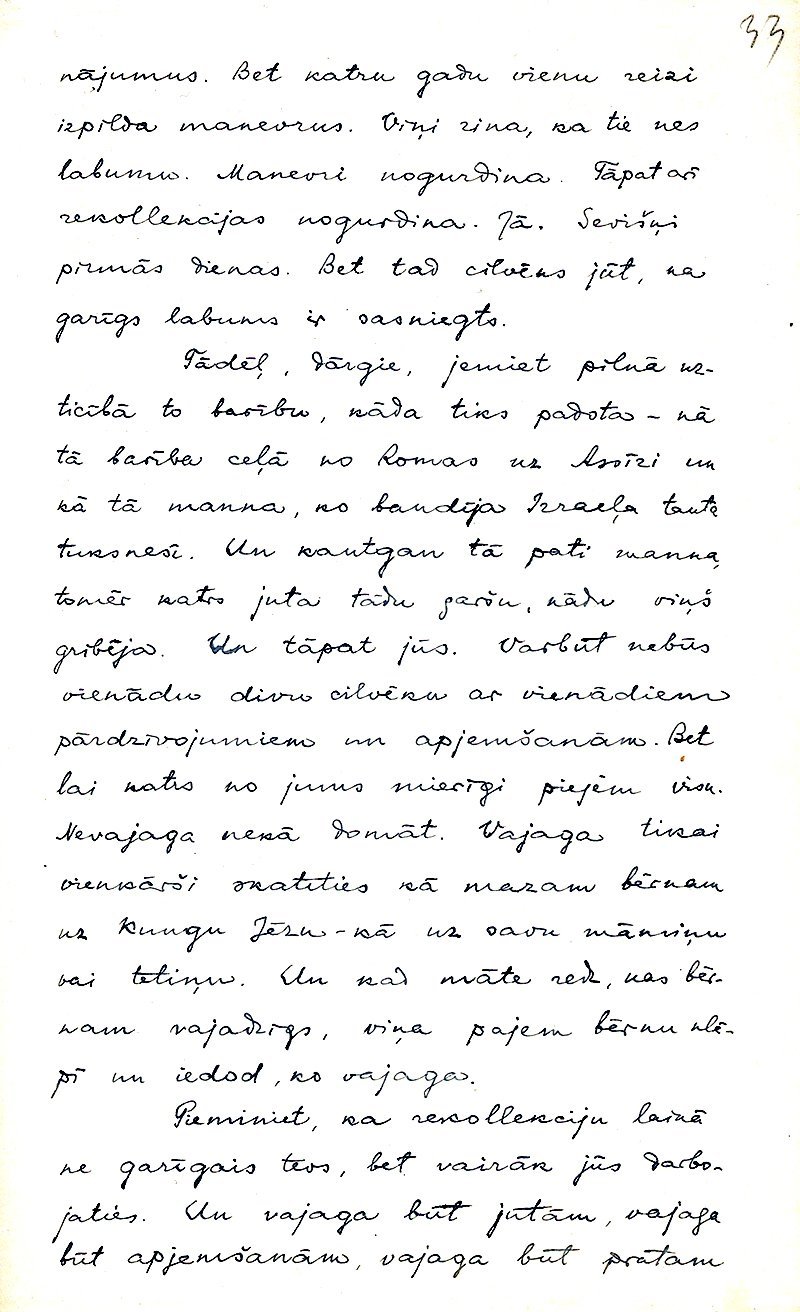 33
nājumus. Bet katru gadu vienu reizi
izpilda manevrus. Viņi zina, ka tie nes
labumu. Manevri nogurdina. Tāpat arī
rekollekcijas nogurdina. Jā. Sevišķi
pirmās dienas. Bet tad cilvēks jūt, ka
garīgs labums ir sasniegts.
Tādēļ, dārgie, ņemiet pilnā uz-
ticībā to barību, kāda tiks padota – kā
tā barība ceļā no Romas uz Assīzi un
kā tā manna, ko baudīja Izraeļa tauta
tuksnesī. Un kautgan tā pati manna,
tomēr katrs juta tādu garšu, kādu viņš
gribēja. Un tāpat jūs. Varbūt nebūs
vienādu divu cilvēku ar vienādiem
pārdzīvojumiem un apņemšanām. Bet
lai katrs no jums mierīgi pieņem visu.
Nevajaga nekā domāt. Vajaga tikai
vienkārši skatīties kā mazam bērnam
uz Kungu Jēzu – kā uz savu māmiņu
vai tētiņu. Un kad māte redz, kas bēr-
nam vajadzīgs, viņa paņem bērnu klē-
pī un iedod, ko vajaga.
Pieminiet, ka rekollekciju laikā
ne garīgais tēvs, bet vairāk jūs darbo-
jaties. Un vajaga būt jūtām, vajaga
būt apņemšanām, vajaga būt prātam